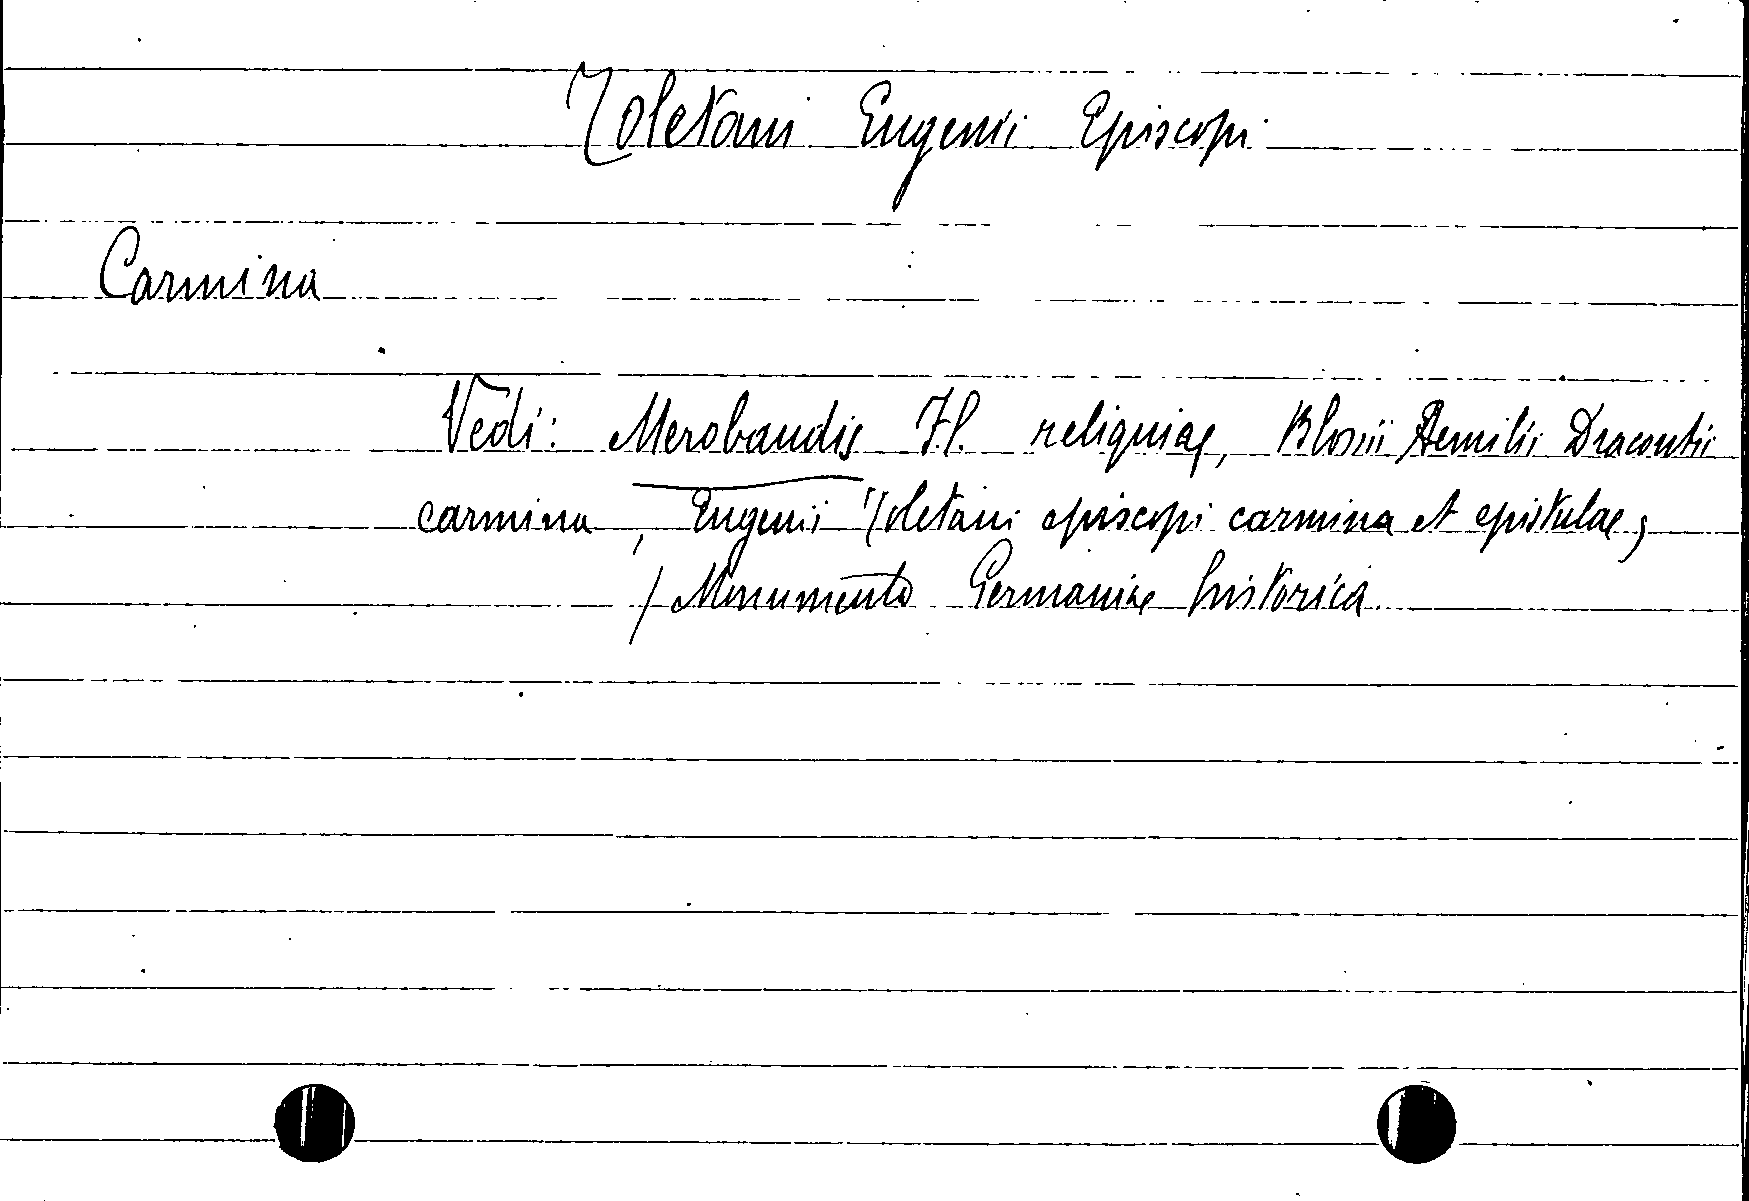 Toletani Eugenii Episcopi
Carmina
Vedi: Merobaudis Fl. reliquiae, Blossii Aemilii Dracontii
carmina, Eugenii Toletani episcopi carmina et epistulae;
/ Monumenta Germaniae historica